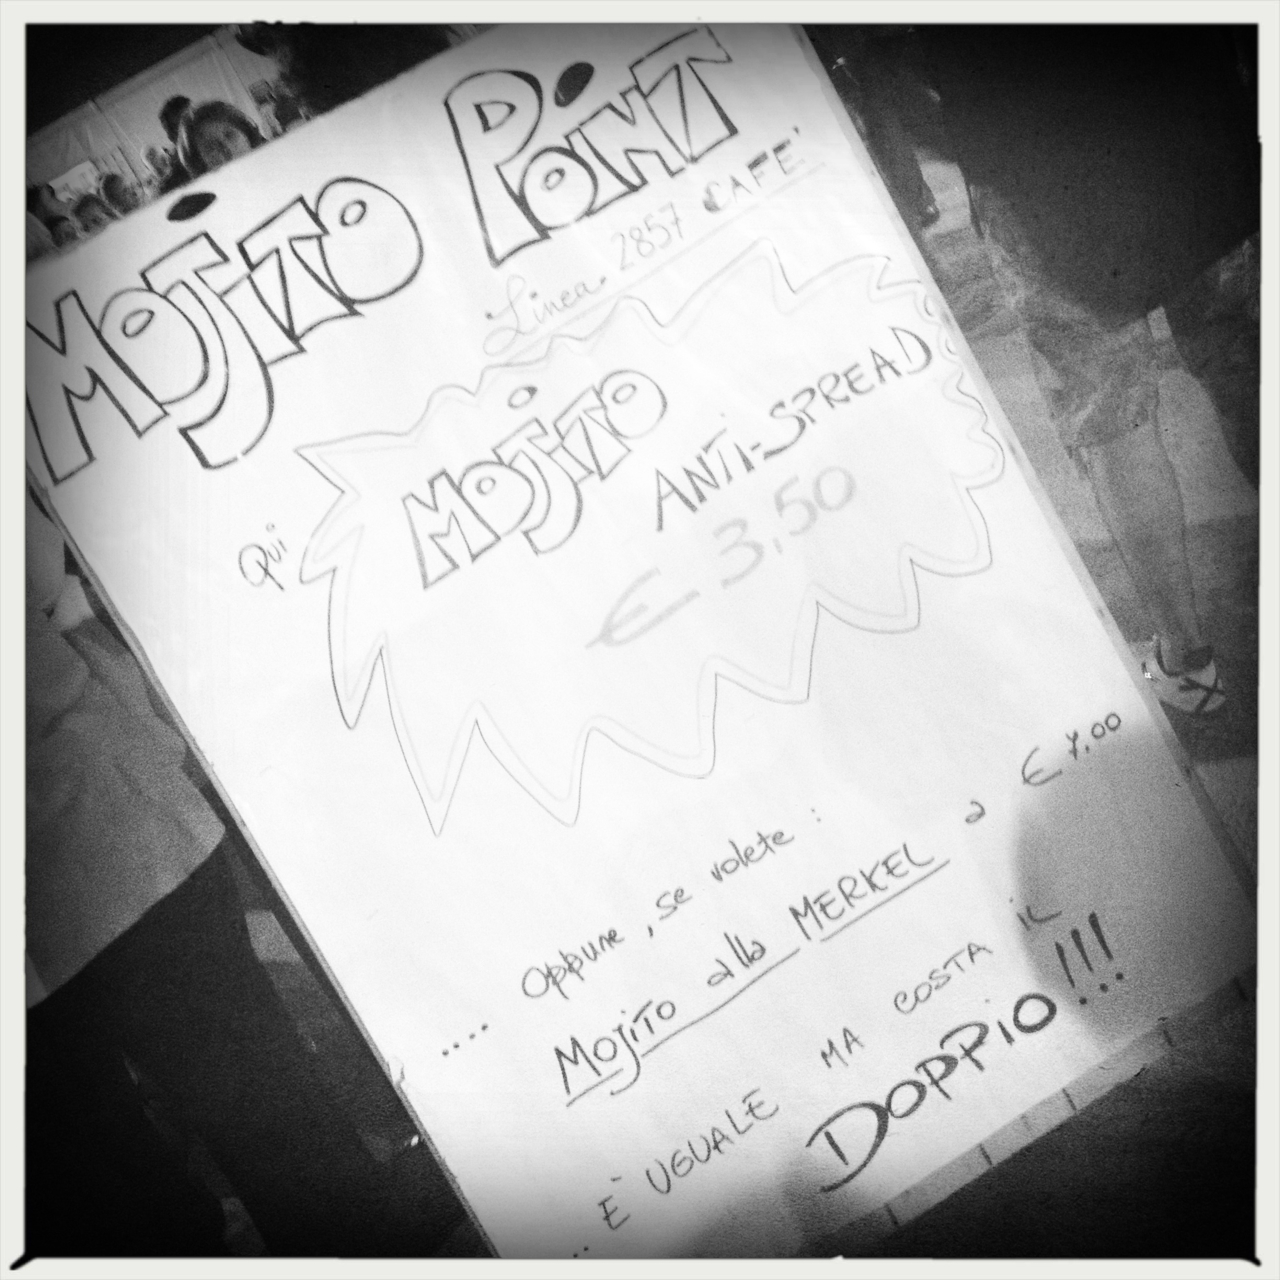 MOJiTO POiNT
Linea. 2857 CAFE'
Qui
MOJiTO
ANTi-SPREAD
€ 3,50
.... Oppure, se volete:
MOJiTO alla MERKEL a € 7,00
.. E' UGUALE MA COSTA iL
DOPPiO!!!